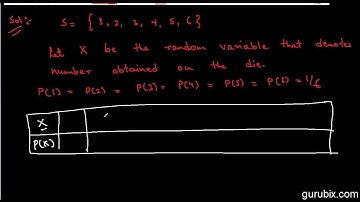 Sol:- S = { 1, 2, 3, 4, 5, 6 }
Let X be the random variable that denotes
number obtained on the die.
P(1) = P(2) = P(3) = P(4) = P(5) = P(6) = 1/6
X
P(X)
gurubix.com